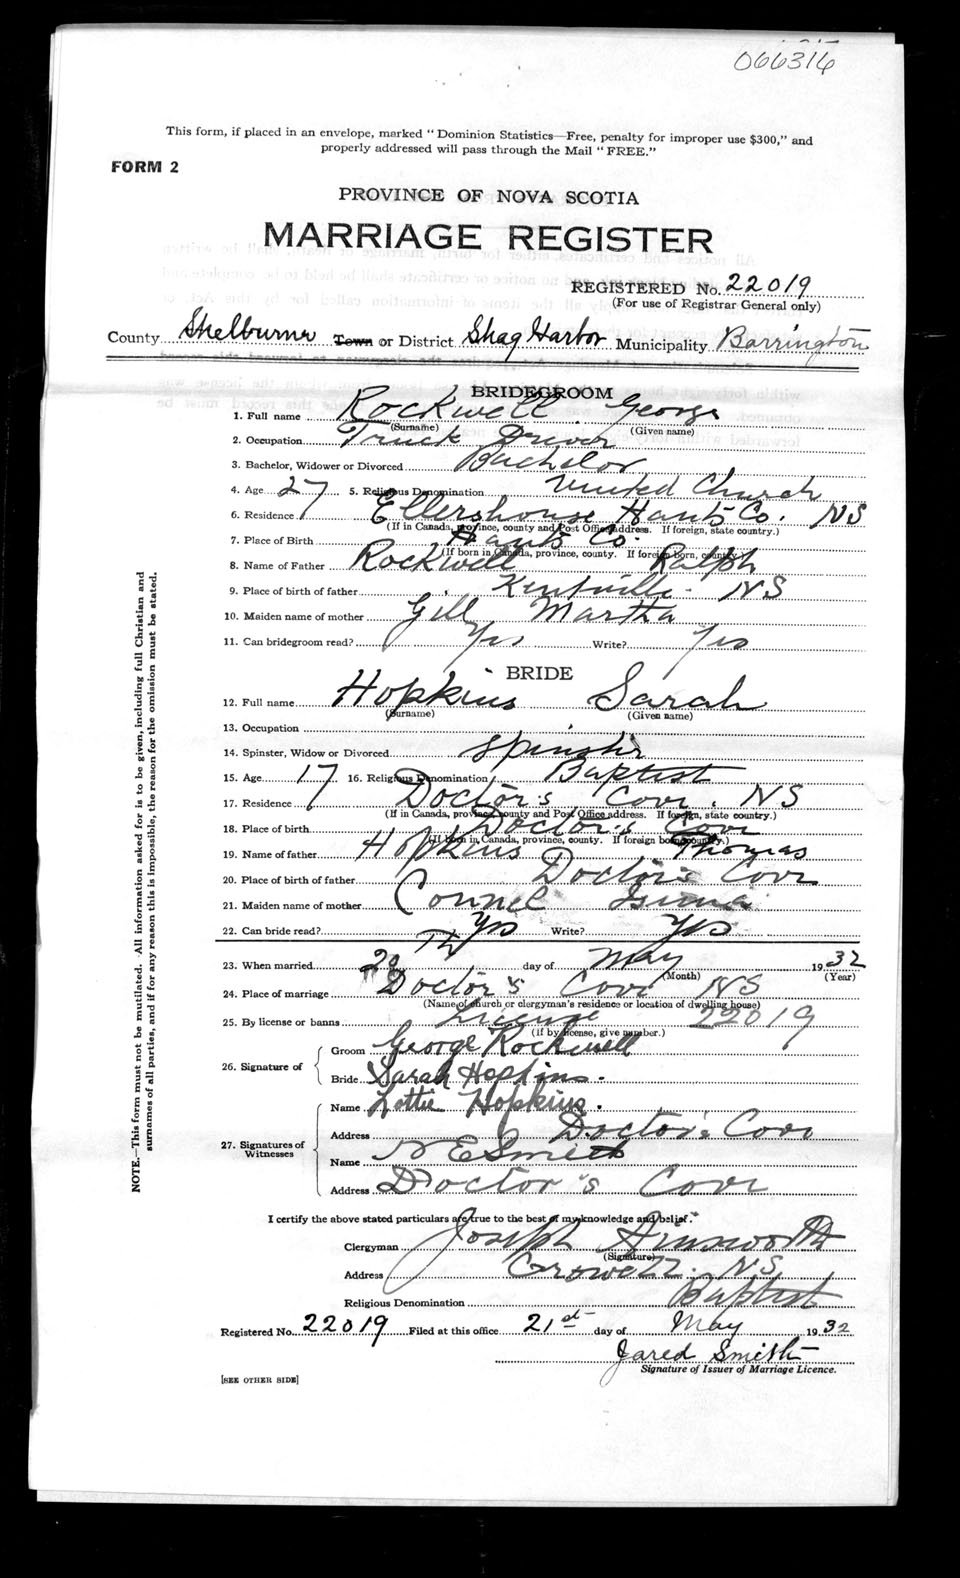 066316
This form, if placed in an envelope, marked "Dominion Statistics—Free, penalty for improper use $300," and
properly addressed will pass through the Mail "FREE."
FORM 2
PROVINCE OF NOVA SCOTIA
MARRIAGE REGISTER
REGISTERED No. 22019
(For use of Registrar General only)
County Shelburne Town or District Shag Harbor Municipality Barrington
BRIDEGROOM
1. Full name Rockwell George
(Surname) (Given name)
2. Occupation Truck Driver
3. Bachelor, Widower or Divorced Bachelor
4. Age 27 5. Religious Denomination United Church
6. Residence Ellershouse Hants Co. NS
(If in Canada, province, county and Post Office address. If foreign, state country.)
7. Place of Birth Hants Co.
(If born in Canada, province, county. If foreign born, country.)
8. Name of Father Rockwell Ralph
9. Place of birth of father Kentville NS
10. Maiden name of mother Gill Martha
11. Can bridegroom read? Yes Write? Yes
BRIDE
12. Full name Hopkins Sarah
(Surname) (Given name)
13. Occupation
14. Spinster, Widow or Divorced Spinster
15. Age 17 16. Religious Denomination Baptist
17. Residence Doctor's Cove. NS
(If in Canada, province, county and Post Office address. If foreign, state country.)
18. Place of birth Doctor's Cove
(If born in Canada, province, county. If foreign born, country.)
19. Name of father Hopkins Thomas
20. Place of birth of father Doctor's Cove
21. Maiden name of mother Connel
22. Can bride read? Yes Write? Yes
23. When married 20 Th day of May 1932
(Month) (Year)
24. Place of marriage Doctor's Cove NS
(Name of church or clergyman's residence or location of dwelling house)
25. By license or banns License 22019
(if by license, give number.)
26. Signature of
Groom George Rockwell
Bride Sarah Hopkins.
27. Signatures of Witnesses
Name Lottie Hopkins.
Address Doctor's Cove
Name N E Smith
Address Doctor's Cove
I certify the above stated particulars are true to the best of my knowledge and belief.
Clergyman Joseph Ainsworth
(Signature)
Address Crowell. NS
Religious Denomination Baptist
Registered No. 22019 Filed at this office 21st day of May 1932
Jared Smith
Signature of Issuer of Marriage Licence.
[SEE OTHER SIDE]
NOTE.—This form must not be mutilated. All information asked for is to be given, including full Christian and
surnames of all parties, and if for any reason this is impossible, the reason for the omission must be stated.